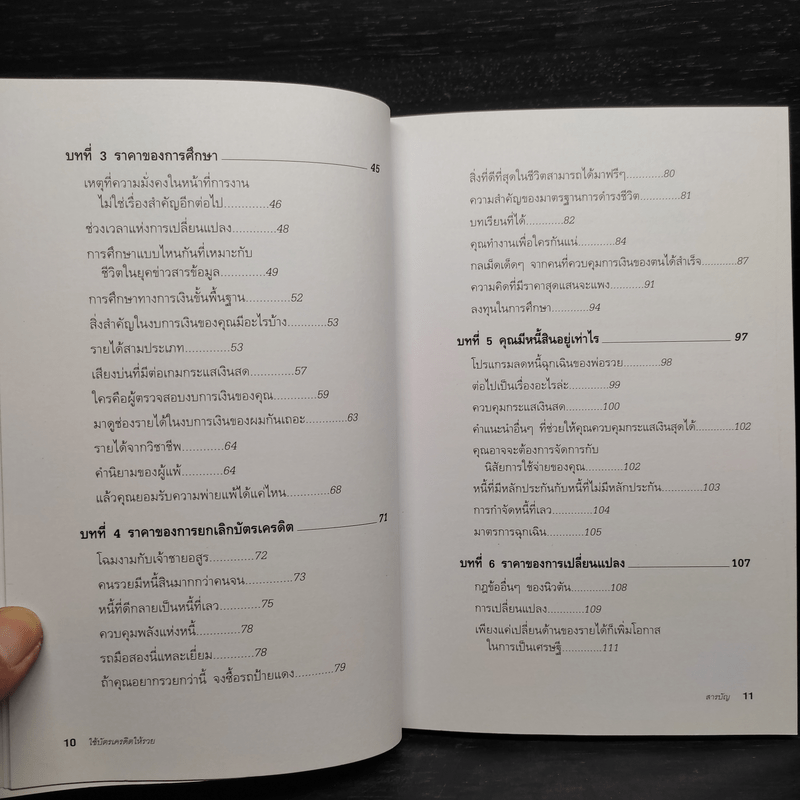 บทที่ 3 ราคาของการศึกษา 45
เหตุที่ความมั่งคงในหน้าที่การงาน
ไม่ใช่เรื่องสำคัญอีกต่อไป.............46
ช่วงเวลาแห่งการเปลี่ยนแปลง.............48
การศึกษาแบบไหนกันที่เหมาะกับ
ชีวิตในยุคข่าวสารข้อมูล.............49
การศึกษาทางการเงินขั้นพื้นฐาน.............52
สิ่งสำคัญในงบการเงินของคุณมีอะไรบ้าง............53
รายได้สามประเภท.............53
เสียงบ่นที่มีต่อเกมกระแสเงินสด.............57
ใครคือผู้ตรวจสอบงบการเงินของคุณ.............59
มาดูช่องรายได้ในงบการเงินของผมกันเถอะ............63
รายได้จากวิชาชีพ............64
คำนิยามของผู้แพ้............64
แล้วคุณยอมรับความพ่ายแพ้ได้แค่ไหน............68
บทที่ 4 ราคาของการยกเลิกบัตรเครดิต 71
โฉมงามกับเจ้าชายอสูร.............72
คนรวยมีหนี้สินมากกว่าคนจน.............73
หนี้ที่ดีกลายเป็นหนี้ที่เลว............75
ควบคุมพลังแห่งหนี้.............78
รถมือสองนี่แหละเยี่ยม............78
ถ้าคุณอยากรวยกว่านี้ จงซื้อรถป้ายแดง............79
10 ใช้บัตรเครดิตให้รวย
สิ่งที่ดีที่สุดในชีวิตสามารถได้มาฟรีๆ............80
ความสำคัญของมาตรฐานการดำรงชีวิต............81
บทเรียนที่ได้............82
คุณทำงานเพื่อใครกันแน่............84
กลเม็ดเด็ดๆ จากคนที่ควบคุมการเงินของตนได้สำเร็จ............87
ความคิดที่มีราคาสุดแสนจะแพง............91
ลงทุนในการศึกษา............94
บทที่ 5 คุณมีหนี้สินอยู่เท่าไร 97
โปรแกรมลดหนี้ฉุกเฉินของพ่อรวย............98
ต่อไปเป็นเรื่องอะไรล่ะ............99
ควบคุมกระแสเงินสด............100
คำแนะนำอื่นๆ ที่ช่วยให้คุณควบคุมกระแสเงินสุดได้............102
คุณอาจจะต้องการจัดการกับ
นิสัยการใช้จ่ายของคุณ............102
หนี้ที่มีหลักประกันกับหนี้ที่ไม่มีหลักประกัน............103
การกำจัดหนี้ที่เลว............104
มาตรการฉุกเฉิน............105
บทที่ 6 ราคาของการเปลี่ยนแปลง 107
กฎข้ออื่นๆ ของนิวตัน............108
การเปลี่ยนแปลง............109
เพียงแค่เปลี่ยนด้านของรายได้ก็เพิ่มโอกาส
ในการเป็นเศรษฐี............111
สารบัญ 11